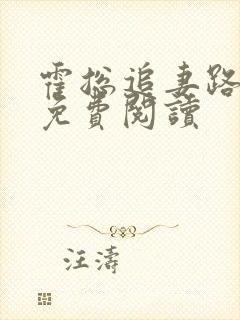 霍总追妻路
免費閱讀
汪濤